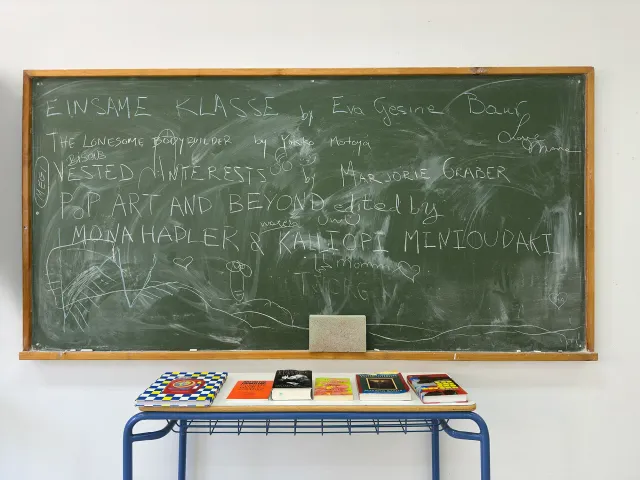 EINSAME KLASSE by Eva Gesine Baur
THE LONESOME BODYBUILDER by Yukiko Motoya
Love
VESTED INTERESTS by MARJORIE GRABER
POP ART AND BEYOND edited by
MONA HADLER & KALLIOPI MINIOUDAKI